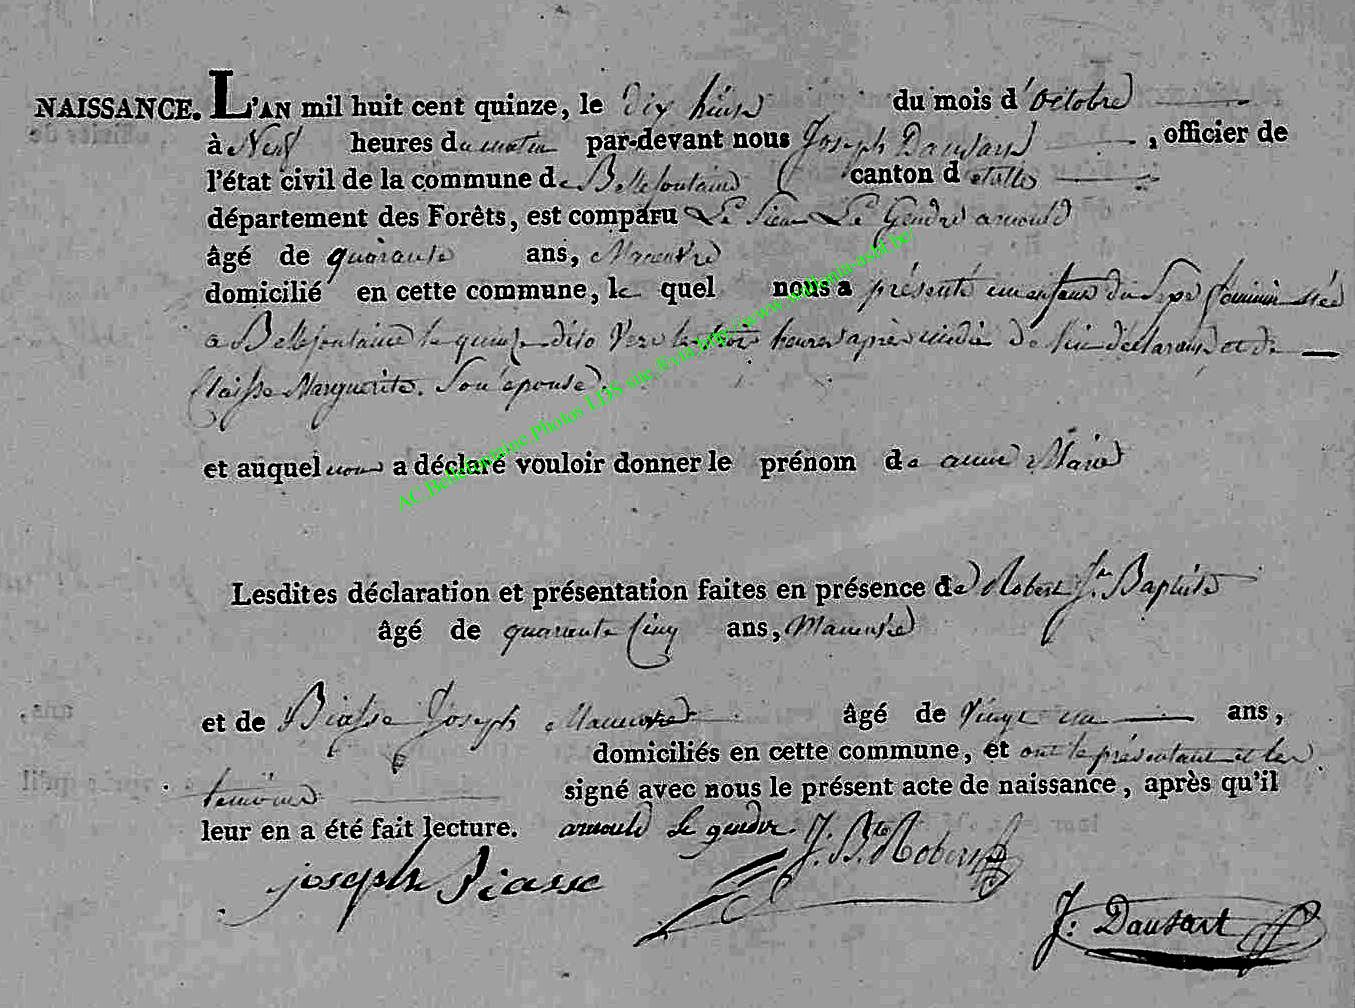 NAISSANCE. L'AN mil huit cent quinze, le dix huit du mois d'octobre
à Neuf heures du matin par-devant nous Joseph Dausart, officier de
l'état civil de la commune de Bellefontaine canton d'etalle
département des Forêts, est comparu Le Sieur Le Gendre arnould
âgé de quarante ans,
domicilié en cette commune, le quel nous a présenté un enfant du Sexe feminin née
a Bellefontaine le quinze dito vers les trois heures après midi De lui déclarant et de
Claisse Marguerite. Son épouse.
et auquel nous a déclaré vouloir donner le prénom de anne Marie
Lesdites déclaration et présentation faites en présence de Robert Jn Baptiste
âgé de quarante Cinq ans, Manuvre
et de Biasse Joseph Manuvre âgé de Vingt un ans,
domiciliés en cette commune, et ont le présentant et les
temoins signé avec nous le présent acte de naissance, après qu'il
leur en a été fait lecture. arnould Le gendre. J. Bte Robert
joseph Piasse
J: Dausart
AC Bellefontaine Photos LDS site Exta http://www.wallonia-asbl.be/